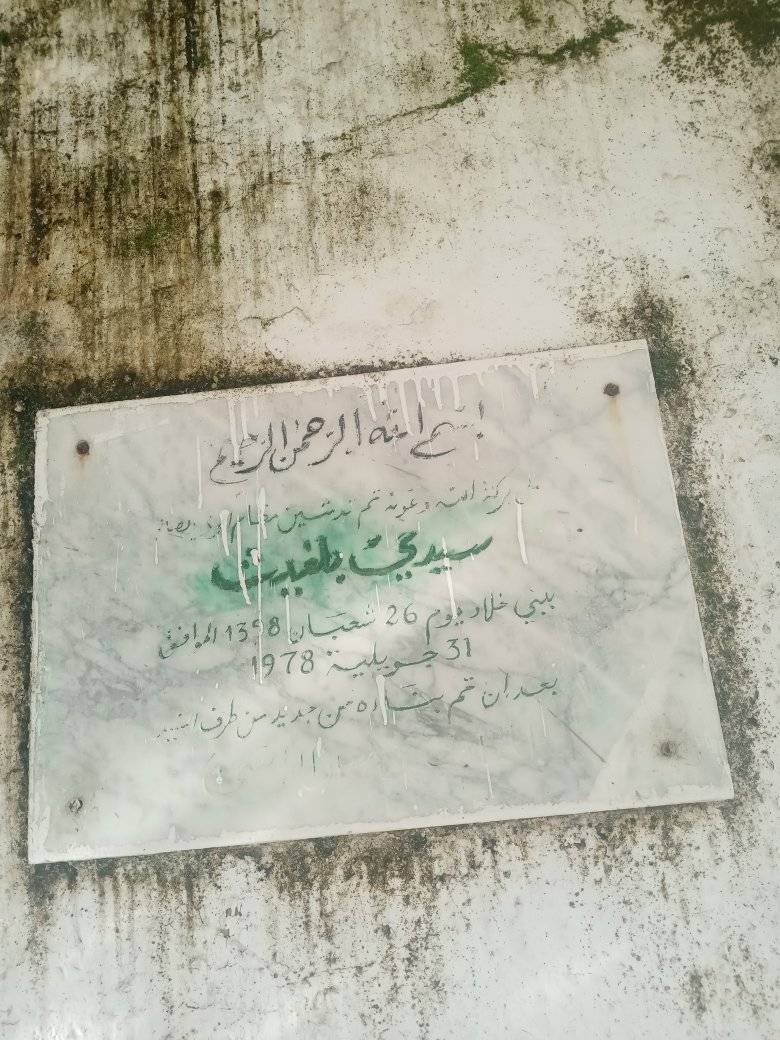 بسم الله الرحمن الرحيم
بركة الله وعونه تم تدشين مقام
سيدي بلغيث
ببني خلاد يوم 26 شعبان 1398 الموافق
31 جويلية 1978
بعد ان تم بناءه من جديد من طرف